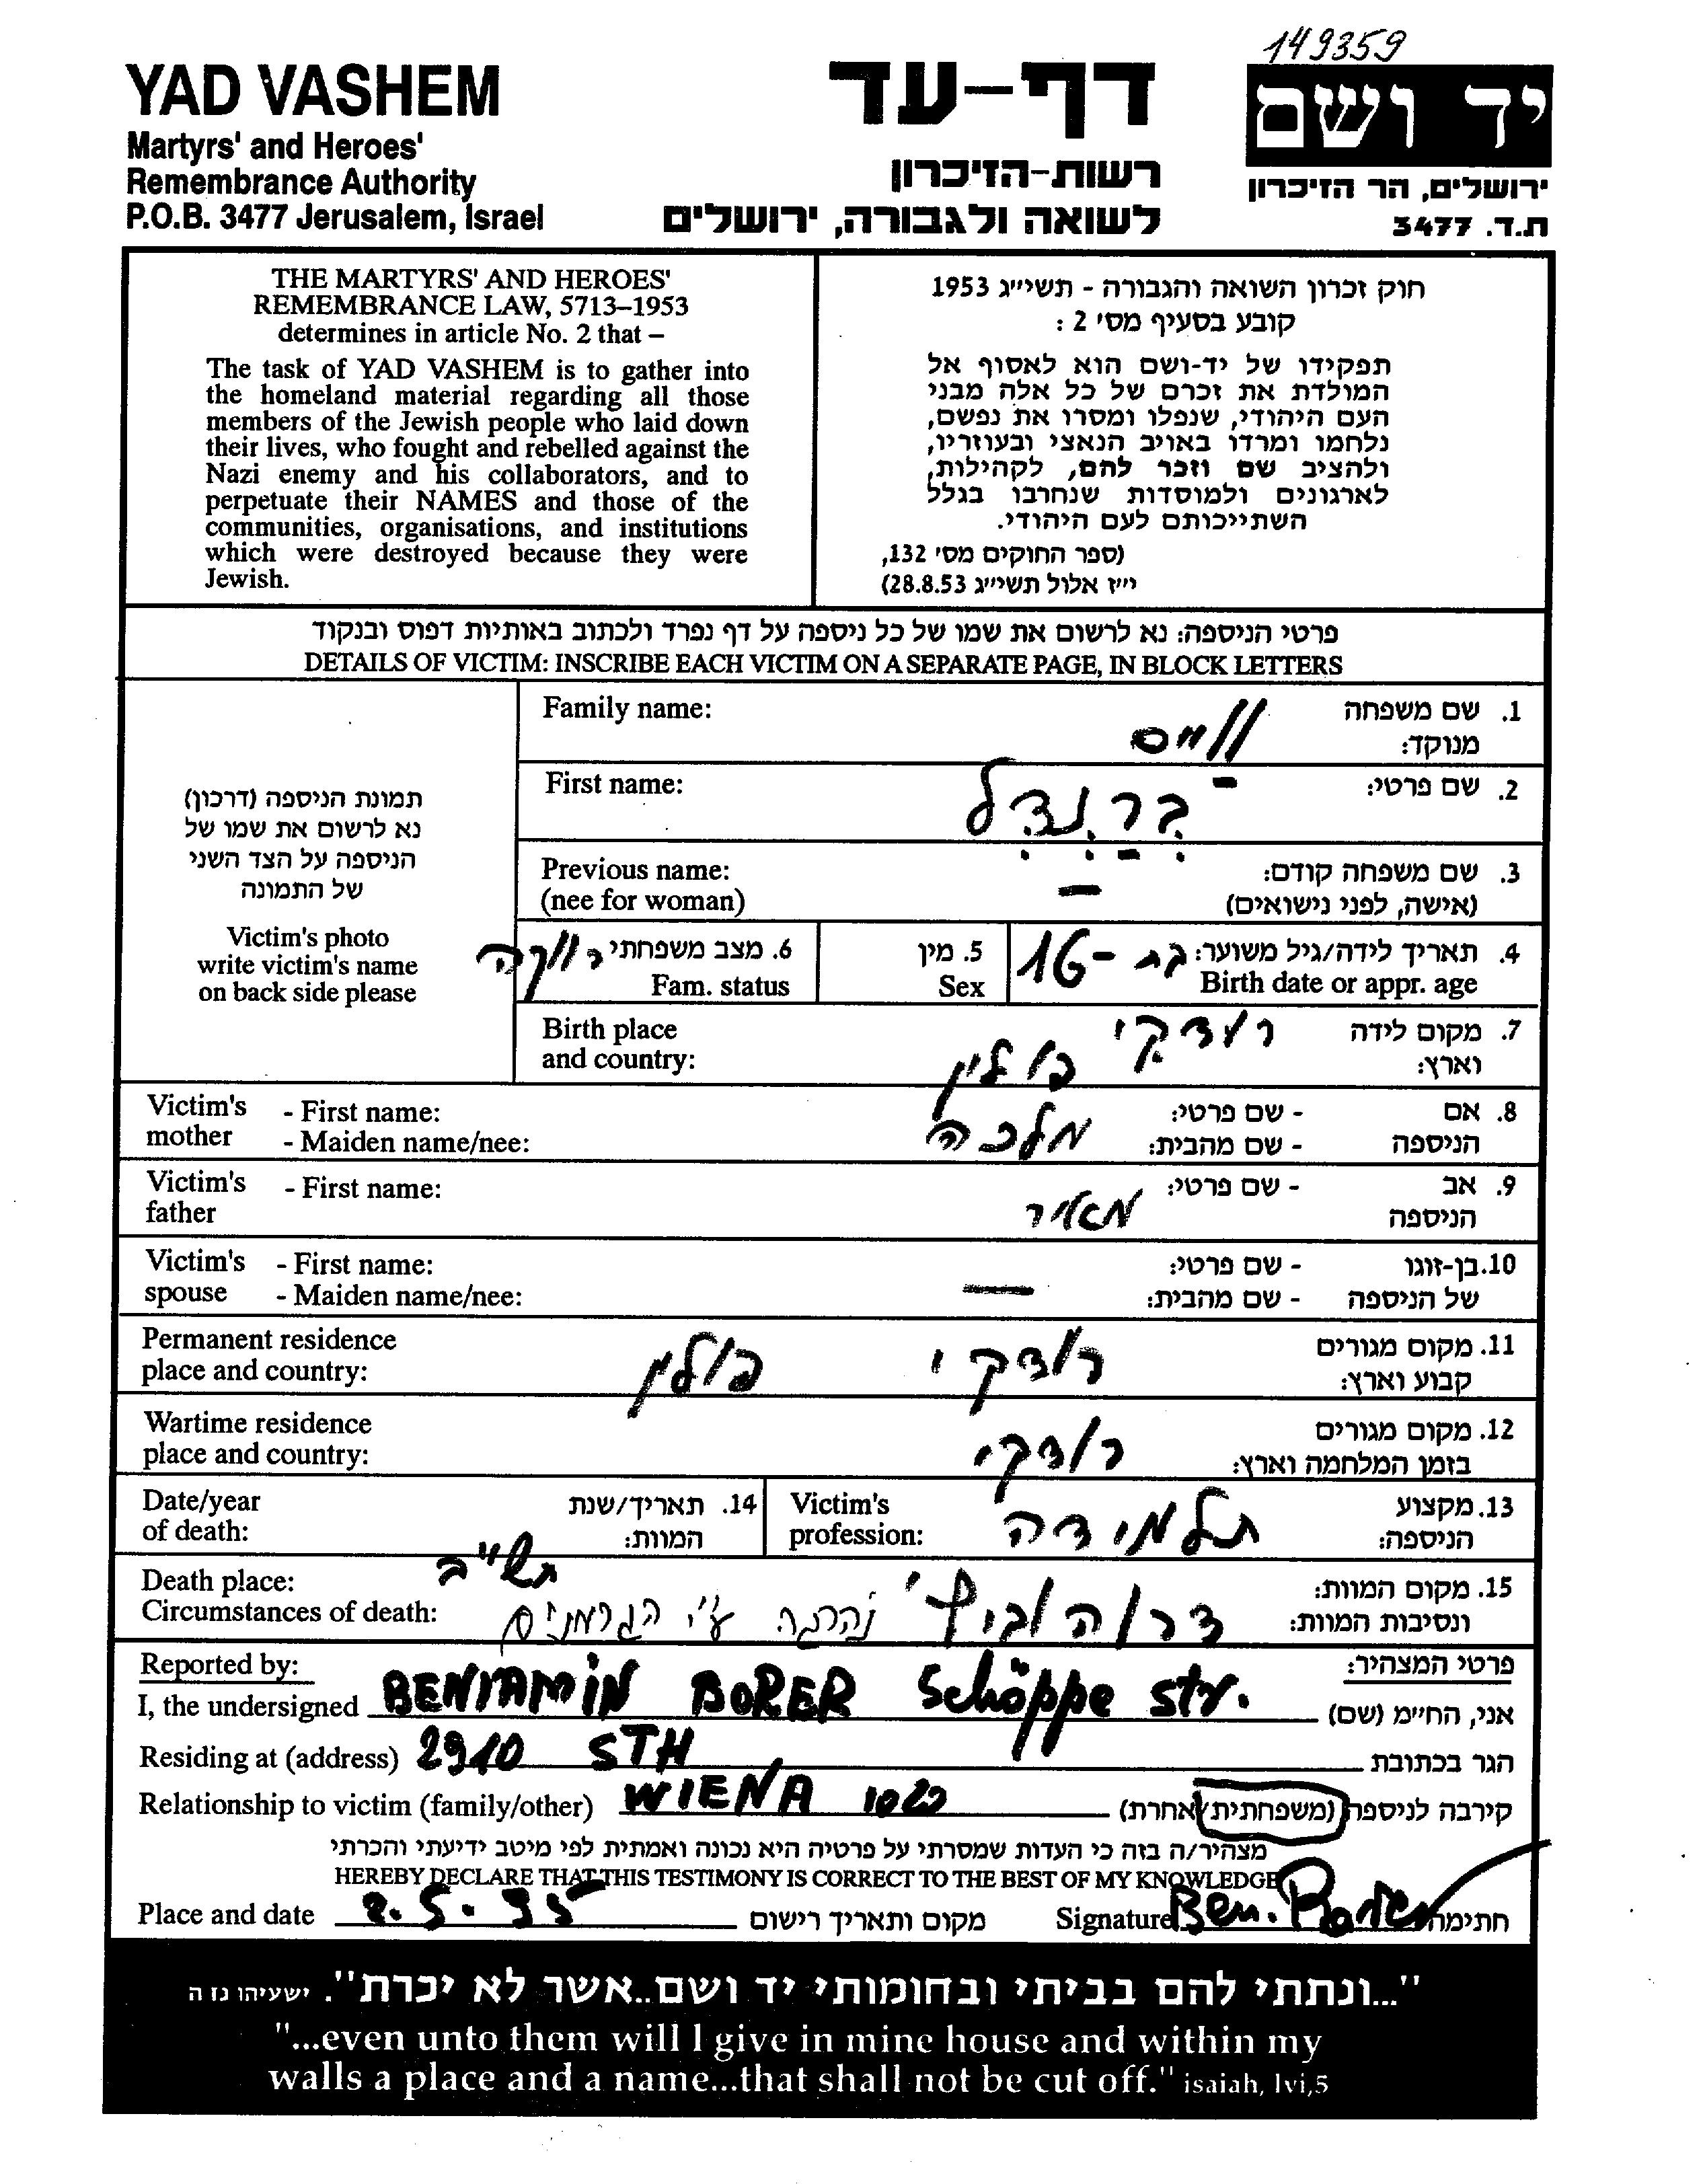 149359
YAD VASHEM
Martyrs' and Heroes'
Remembrance Authority
P.O.B. 3477 Jerusalem, Israel
דף-עד
רשות-הזיכרון
לשואה ולגבורה, ירושלים
יד ושם
ירושלים, הר הזיכרון
ת.ד. 3477
THE MARTYRS' AND HEROES'
REMEMBRANCE LAW, 5713–1953
determines in article No. 2 that –
The task of YAD VASHEM is to gather into
the homeland material regarding all those
members of the Jewish people who laid down
their lives, who fought and rebelled against the
Nazi enemy and his collaborators, and to
perpetuate their NAMES and those of the
communities, organisations, and institutions
which were destroyed because they were
Jewish.
חוק זכרון השואה והגבורה - תשי״ג 1953
קובע בסעיף מס׳ 2 :
תפקידו של יד-ושם הוא לאסוף אל
המולדת את זכרם של כל אלה מבני
העם היהודי, שנפלו ומסרו את נפשם,
נלחמו ומרדו באויב הנאצי ובעוזריו,
ולהציב שם וזכר להם, לקהילות,
לארגונים ולמוסדות שנחרבו בגלל
השתייכותם לעם היהודי.
(ספר החוקים מס׳ 132,
י״ז אלול תשי״ג 28.8.53)
פרטי הניספה: נא לרשום את שמו של כל ניספה על דף נפרד ולכתוב באותיות דפוס ובנקוד
DETAILS OF VICTIM: INSCRIBE EACH VICTIM ON A SEPARATE PAGE, IN BLOCK LETTERS
תמונת הניספה (דרכון)
נא לרשום את שמו של
הניספה על הצד השני
של התמונה
Victim's photo
write victim's name
on back side please
Family name: ווייס 1. שם משפחה
מנוקד:
First name: ברנדל 2. שם פרטי:
Previous name: – 3. שם משפחה קודם:
(nee for woman) (אישה, לפני נישואים)
4. תאריך לידה/גיל משוער: בת -16
Birth date or appr. age
5. מין
Sex
6. מצב משפחתי רווקה
Fam. status
Birth place רודקי 7. מקום לידה
and country: פולין וארץ:
Victim's - First name: מלכה - שם פרטי: 8. אם
mother - Maiden name/nee: - שם מהבית: הניספה
Victim's - First name: מאיר - שם פרטי: 9. אב
father הניספה
Victim's - First name: - שם פרטי: 10. בן-זוגו
spouse - Maiden name/nee: – - שם מהבית: של הניספה
Permanent residence רודקי פולין 11. מקום מגורים
place and country: קבוע וארץ:
Wartime residence רודקי 12. מקום מגורים
place and country: בזמן המלחמה וארץ:
Date/year 14. תאריך/שנת
of death: תש״ב המוות:
Victim's 13. מקצוע
profession: תלמידה הניספה:
Death place: 15. מקום המוות:
Circumstances of death: דרוהוביץ' נהרגה ע״י הגרמנים ונסיבות המוות:
Reported by: פרטי המצהיר:
I, the undersigned BENJAMIN BORER Schöppe str. אני, החי״מ (שם)
Residing at (address) 2910 STH הגר בכתובת
Relationship to victim (family/other) WIENA 1020 קירבה לניספה (משפחתית/אחרת)
מצהיר/ה בזה כי העדות שמסרתי על פרטיה היא נכונה ואמתית לפי מיטב ידיעתי והכרתי
HEREBY DECLARE THAT THIS TESTIMONY IS CORRECT TO THE BEST OF MY KNOWLEDGE
Place and date 2.5.95 מקום ותאריך רישום Signature Ben. Borer חתימה
"...ונתתי להם בביתי ובחומותי יד ושם..אשר לא יכרת". ישעיהו נז ה
"...even unto them will I give in mine house and within my
walls a place and a name...that shall not be cut off." isaiah, lvi,5